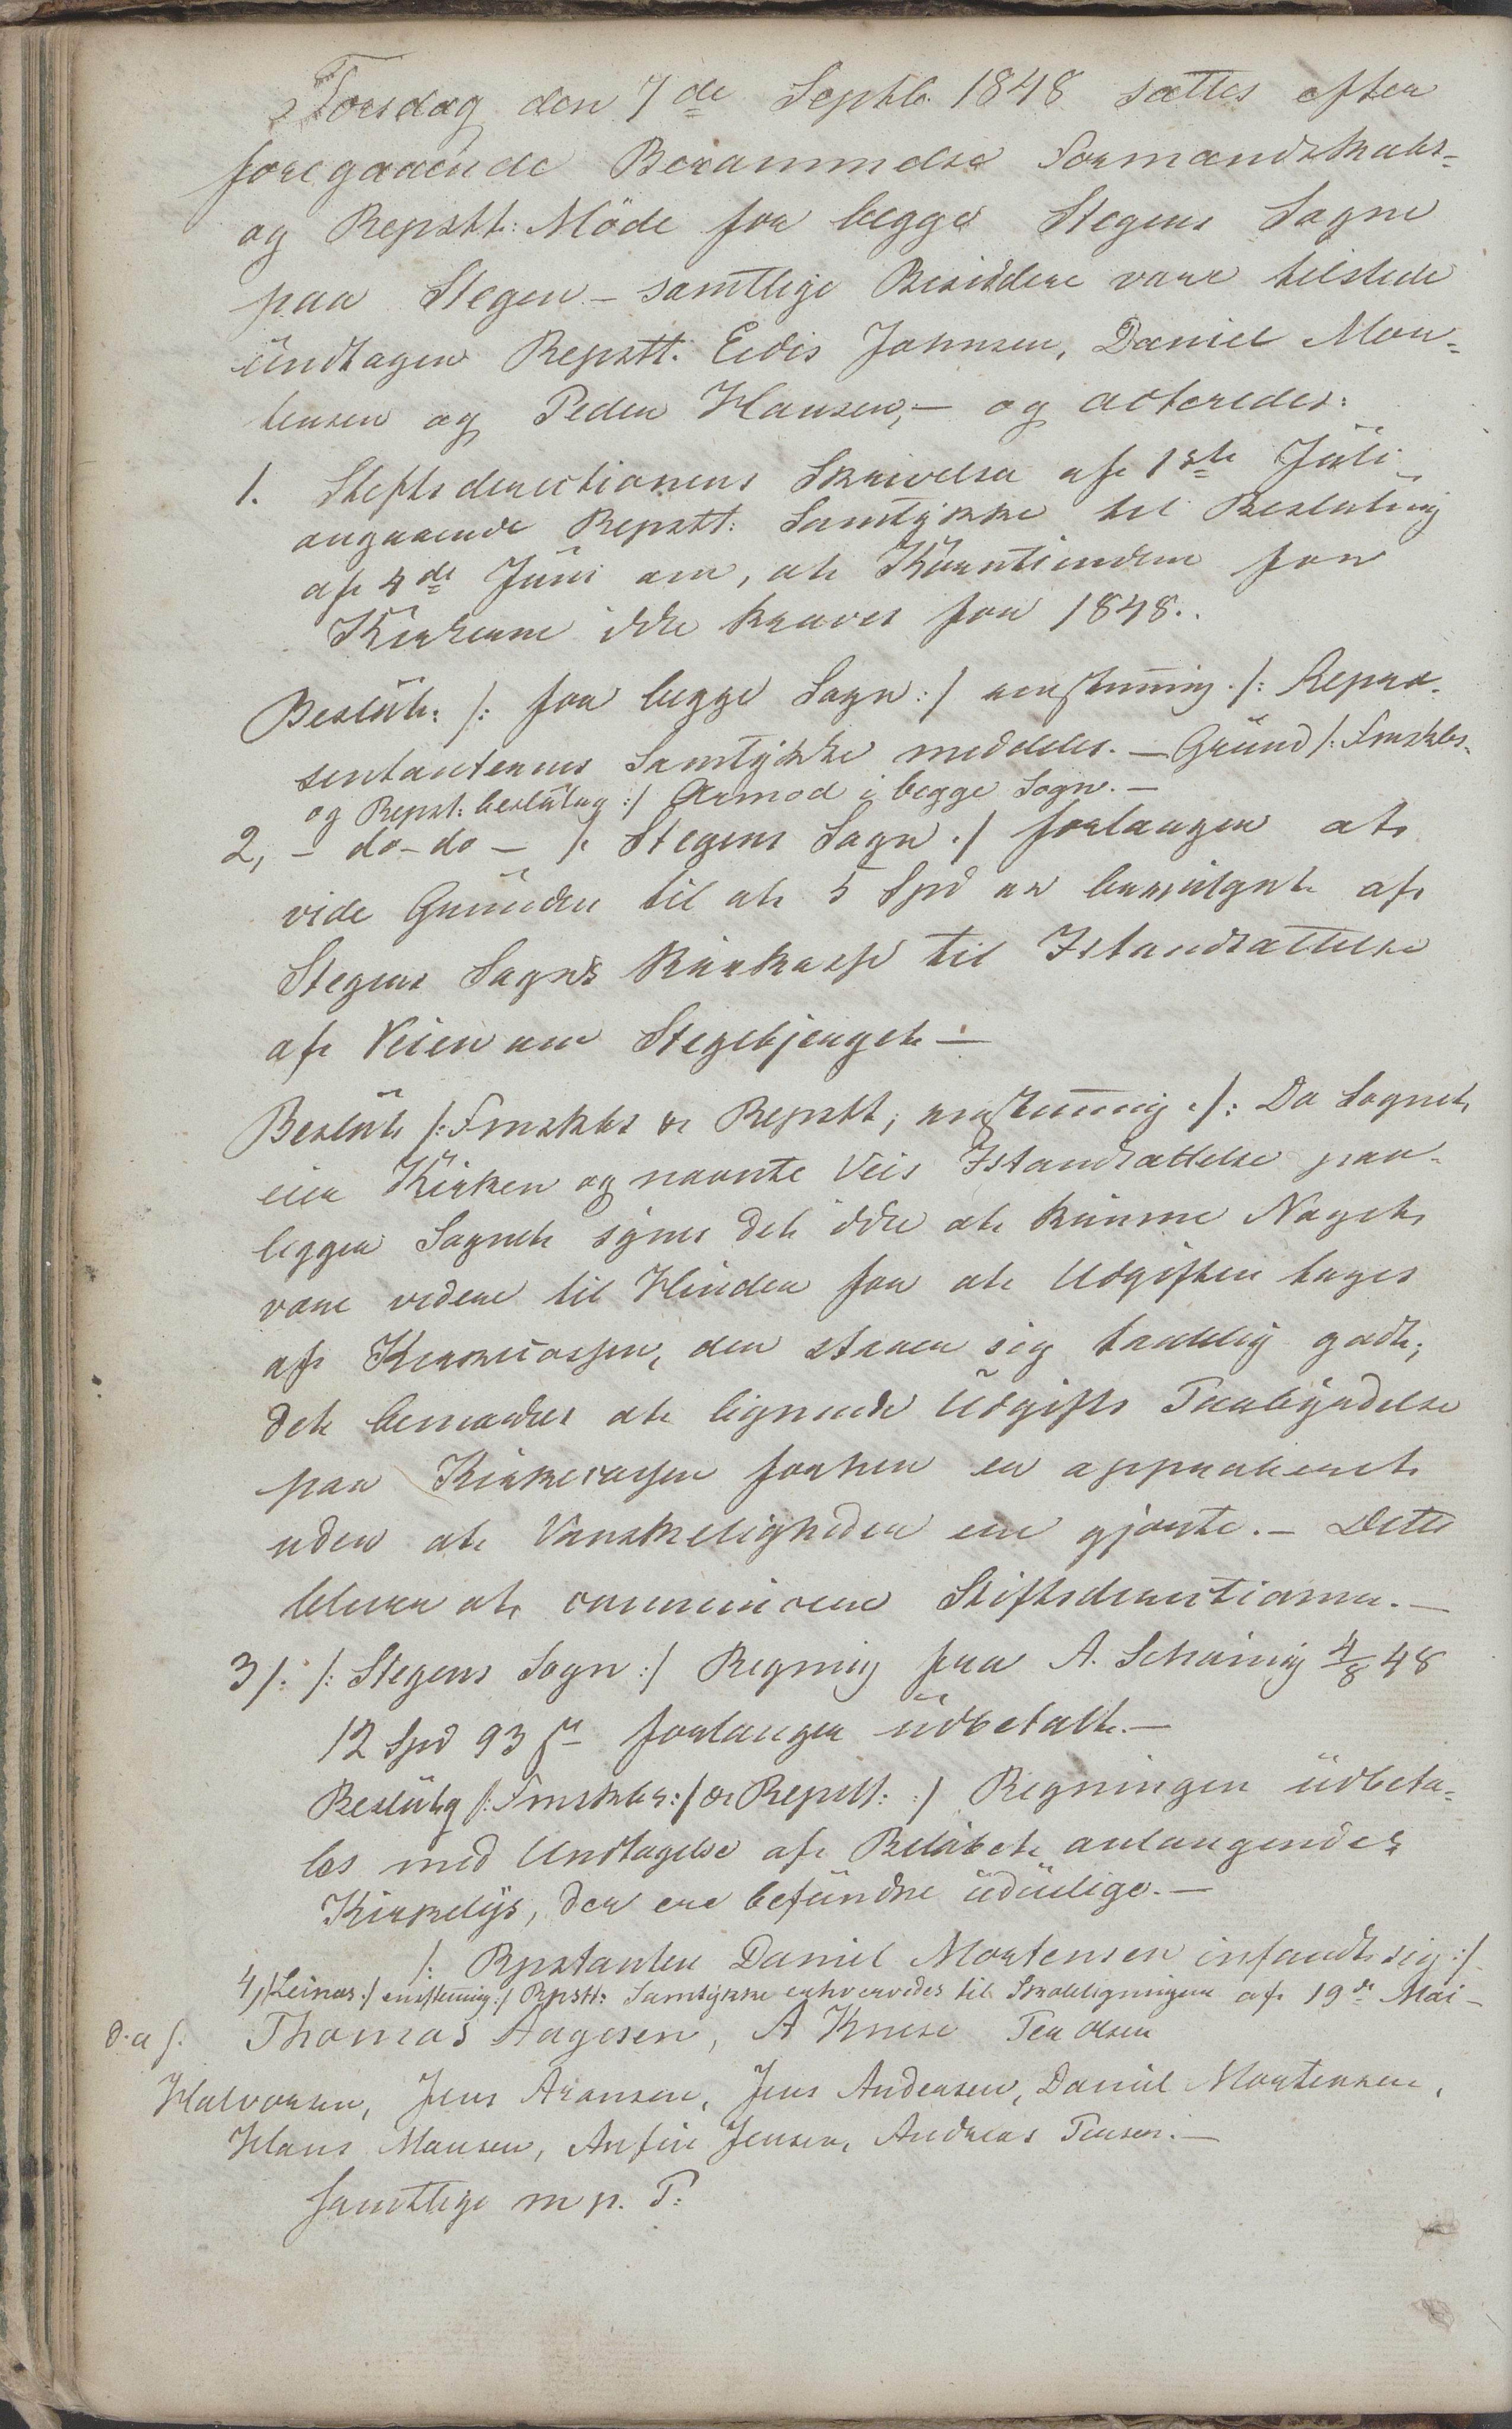 Torsdag den 7de Septb. 1848 sattes efter
foregaaende Berammelse Formandskabs-
og Repstt: Möde for begge Stegens Sogne
paa Stegen – samtlige Besiddere vare tilstede
undtagen Repstt: Eidis Johnsen, Daniel Mor-
tensen og Peder Hansen,– og acteredes:
1. Stiftsdirectionens Skrivelse af 1ste Juli
angaaende Repstt: Samtykke til Beslutning
af 4de Juni om, at Korntienden for
Kirkerne ikke kræves for 1848..
Beslut: /: for begge Sogn :/ eenstemig ./: Repræ-
sentanternes Samtykke meddeles. – Grund /: Fmskbs-
og Repst: beslutng :/ Armod i begge Sogn. –
2, – do – do – /: Stegens Sogn ./ forlanger at
vide Grunden til at 5 Spd er bevilget af
Stegens Sogns Kirkasse til Istandsættelse
af Veien om Stegebjerget –
Beslut /: Fmskbs & Repstt; eenstemig ./: Da Sognet
eier Kirken og nævnte Veis Istandsættelse paa-
ligger Sognet synes det ikke at kunne Noget
være videre til Hinder for at Udgiften tages
af Kirkecassen, der staaer sig taalelig godt;
det bemærkes at lignende Udgifts Paabyrdelse
paa Kirkecassen forhen er approberet
uden at Vanskeligheder ere gjorte. – Dette
bliver at communicere Stiftsdirectionen. –
3/. /: Stegens Sogn :/ Regning fra A. Schöning 4/8 48
12 Spd 93 s forlanges udbetalt. –
Beslutng /: Fmskbs: / & Repstt: :/ Regningen udbeta-
les med Undtagelse af Beløbet anlangendes
Kirkelys, der ere befundne uduelige. –
/: Rpstanten Daniel Mortensen infandt sig :/
4, /: Leines :/ enstemig :/ Rpstt: Samtykke erhvervedes til Skoleligningen af 19de Mai –
Thomas Aagesen, A Knese Peer Olsen
Halvorsen, Jens Aronsen, Jens Andersen, Daniel Mortensen,
Hans Monsen, Anfin Jensen, Andreas Pensen. –
Samtlige m p. P: